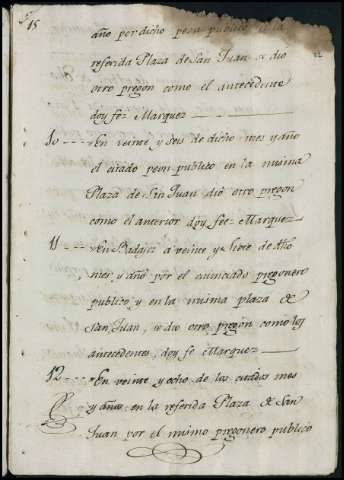 15
año por dicho peon publico en la
referida Plaza de San Juan se dio
otro pregon como el antecedente
doy fe= Marquez
10 En veinte y seis de dicho mes y año
el citado peon publico en la misma
Plaza de San Juan dió otro pregon
como el anterior doy fee= Marquez
11 En Badajoz a veinte y siete de dho
mes, y año por el enunciado pregonero
publico, y en la misma plaza de
San Juan, se dio otro pregon como los
antecedentes, doy fe Marquez
12 En veinte y ocho de los citados mes
y año en la referida Plaza de San
Juan por el mismo pregonero publico